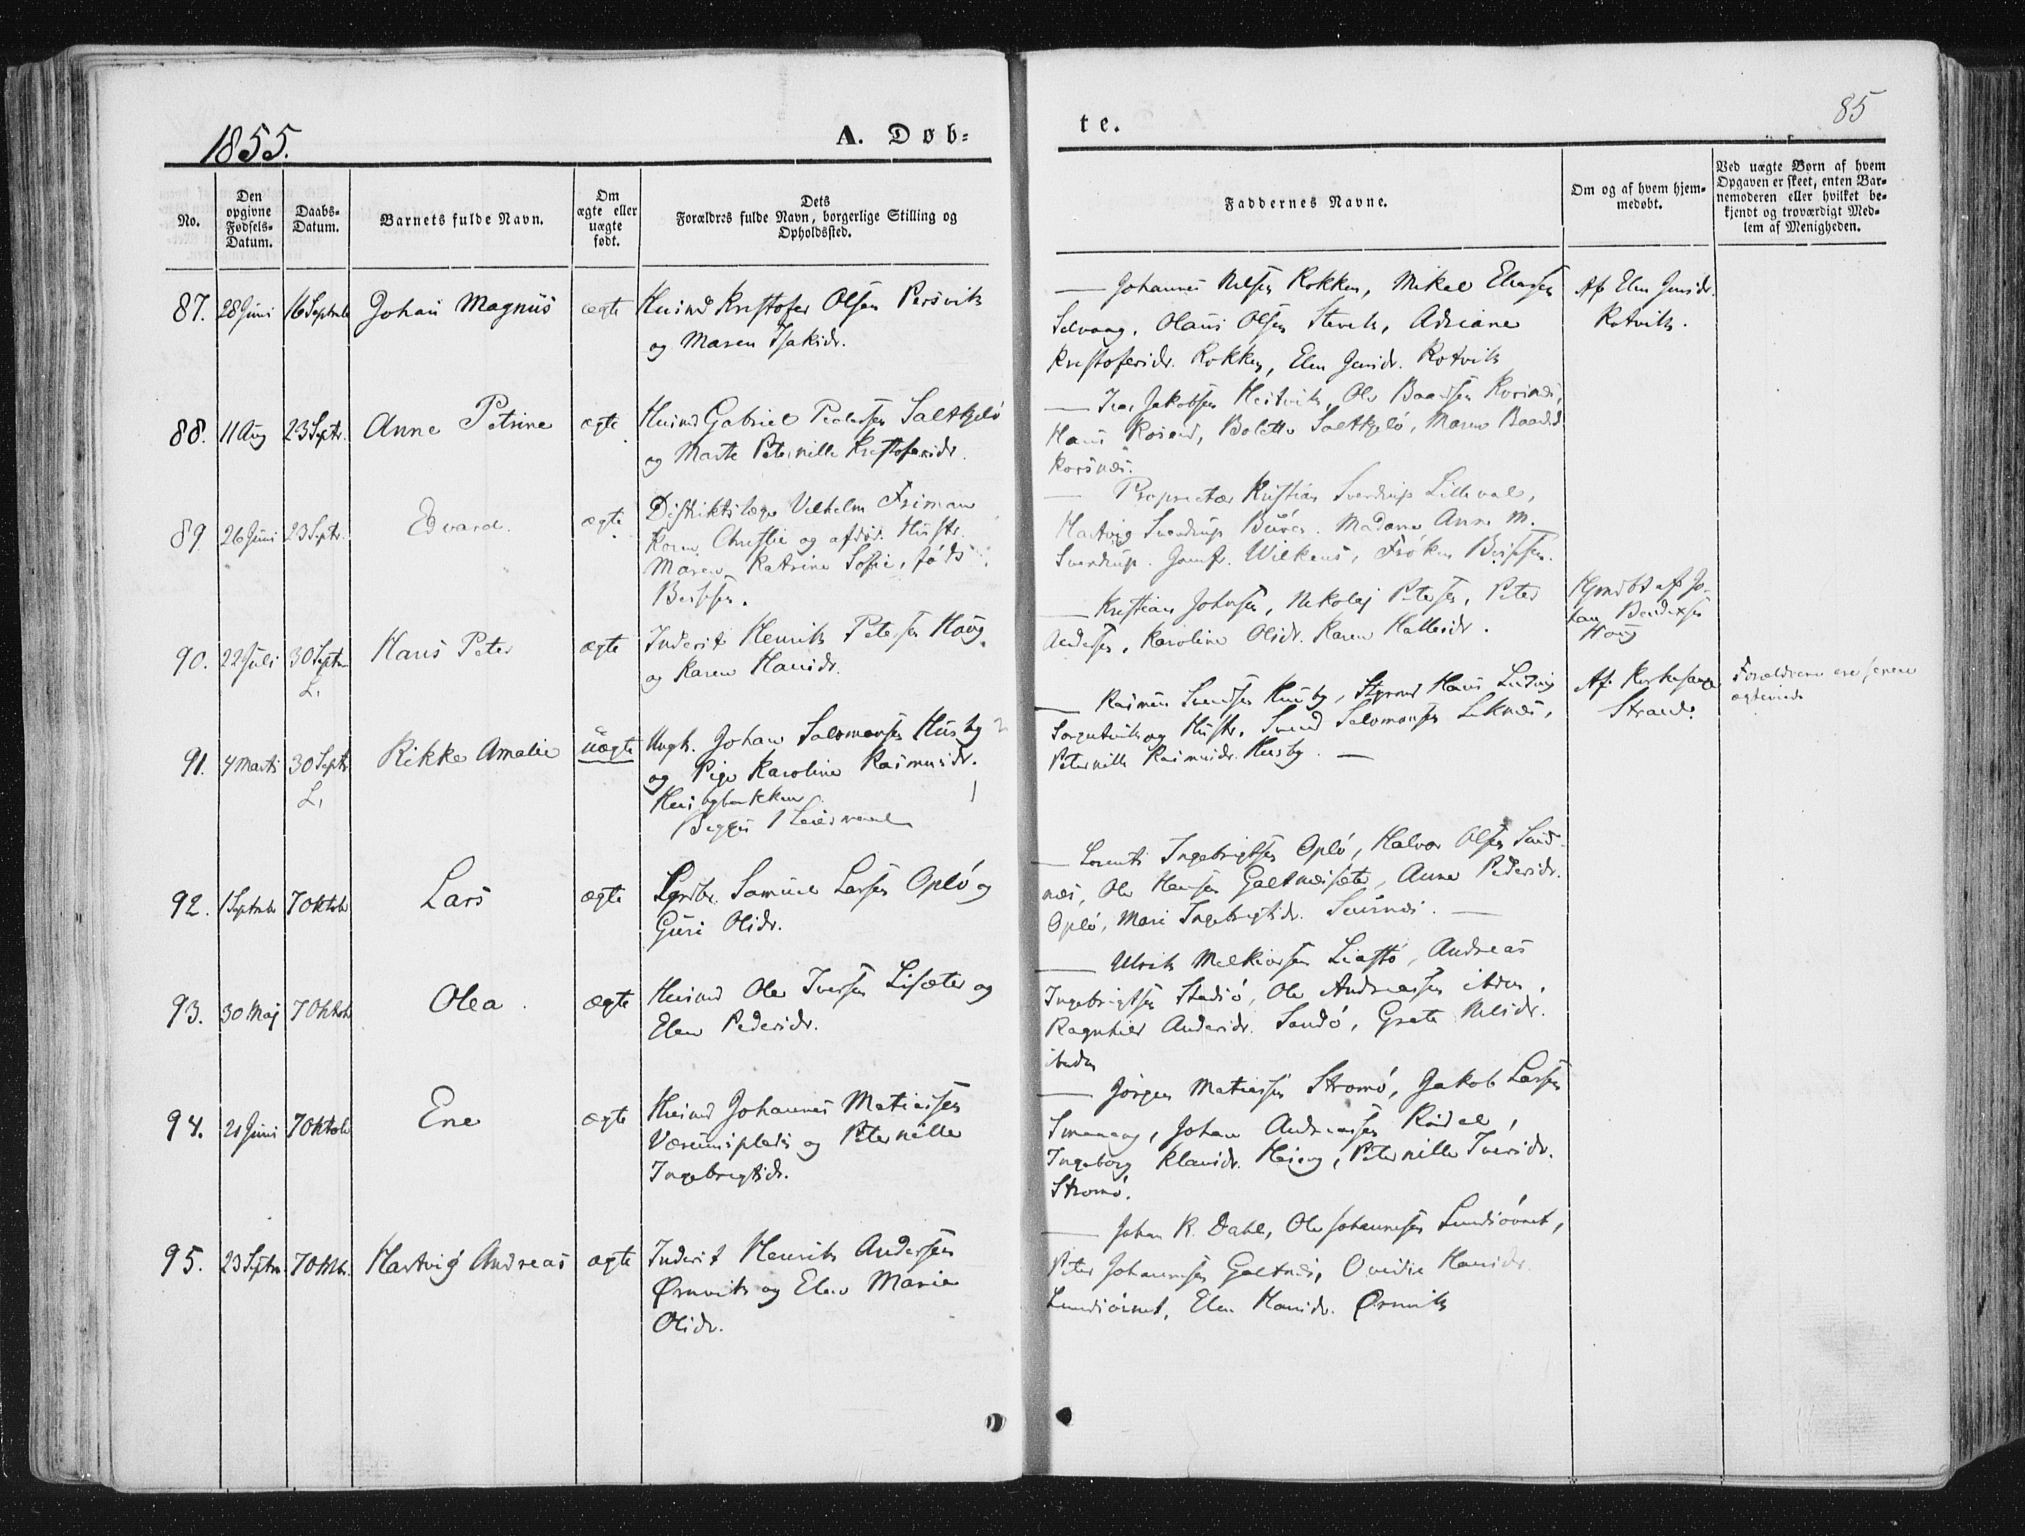 1855.
A. Døb-
te.
85
No.
Den opgivne Fødsels-Datum.
Daabs-Datum.
Barnets fulde Navn.
Om ægte eller uægte født.
Dets
Forældres fulde Navn, borgerlige Stilling og
Opholdssted.
Faddernes Navne.
Om og af hvem hjem-
medøbt.
Ved uægte Børn af hvem
Opgaven er skeet, enten Bar-
nemoderen eller hvilket be-
kjendt og troværdigt Med-
lem af Menigheden.
87. 28 Juni 16 Septmb Johan Magnus ægte Husmd Kristofer Olsen Persvik
og Maren Isaksdr.
Johannes Nilsen Rokken, Mikal Eliasen
Selvaag, Olaus Olsen Adriane
Kristofersdr. Rokken, Elen Jensdr. Rotvik
Af Elen Jensdr.
Rotvik.
88. 11 Aug 23 Septr. Anne Petrine ægte Husmd Gabriel Pedersen Saltkjelø
og Marte Peternille Kristofersdr.
Ivar Jakobsen Ole Baardsen Korsnæs,
Hans Bolette Saltkjelø, Maren Baardsd
Korsnæs.
89. 26 Juni 23 Septr. Edvard. ægte Distriktslæge Vilhelm Friman
Koren Christie og afdød. Hustr.
Maren Katrine Sofie, født
Proprietær Kristian Sverdrup Lilleval,
Hartvig Sverdrup Madame Anne M.
Sverdrup. Jomfr. Wilkens, Frøken
90. 22 Juli 30 Septm L. Hans Peter ægte Inderst Henrik Petersen Houg
og Karen Hansdr.
Kristian Johnsen, Nikolaj Petersen, Peter
Andersen, Karoline Olsdr. Karen
af Jo-
han Bendixsen
Houg
91. 4 Marts 30 Septr. L. Rikke Amalie uægte Ungk. Johan Salomonsen Husby
og Pige Karoline Rasmusdr.
Husbybakken
Begges 1 Leiermaal
Rasmus Svendsen Husby, Hans Ludvig
og Hustr. Svend Salomonsen
Peternille Rasmusdr. Husby.
Af Kirkesanger
Strand.
Forældrene ere senere
ægteviede
92. 1 Septmb 7 Oktob Lars ægte Samuel Larsen Oplø og
Guri Olsdr.
Lorents Ingebrigtsen Oplø, Halvor Olsen Sand-
næs, Ole Hansen Galtnæsæter, Anne Pedersdr.
Oplø, Mari Ingebrigtsdr.
93. 30 Maj 7 Oktob Olea. ægte Husmd Ole Iversen Lisæter og
Elen Pedersdr.
Ulrik Melkiorsen Andreas
Ingebrigtsen Ole Andreassen ibdm.
Ragnhild Andersdr. Sandø, Grete Nilsdr.
ibidem
94. 21 Juni 7 Oktob Ene ægte Husmd Johannes Matiassen
Værumsplads og Peternille
Ingebrigtsdr.
Jørgen Matiassen Stromø, Jakob Larsen
Johan Andreassen
Ingeborg Klausdr. Peternille Iversdr.
Stromø.
95. 23 Septm 7 Oktbr. Hartvig Andreas ægte Inderst Henrik Andersen
Ørnvik og Elen Marie
Olsdr.
Johan R. Dahl, Ole Johannesen
Peter Johannesen Galtnæs, Ovidie Hansdr.
Elen Hansdr. Ørnvik